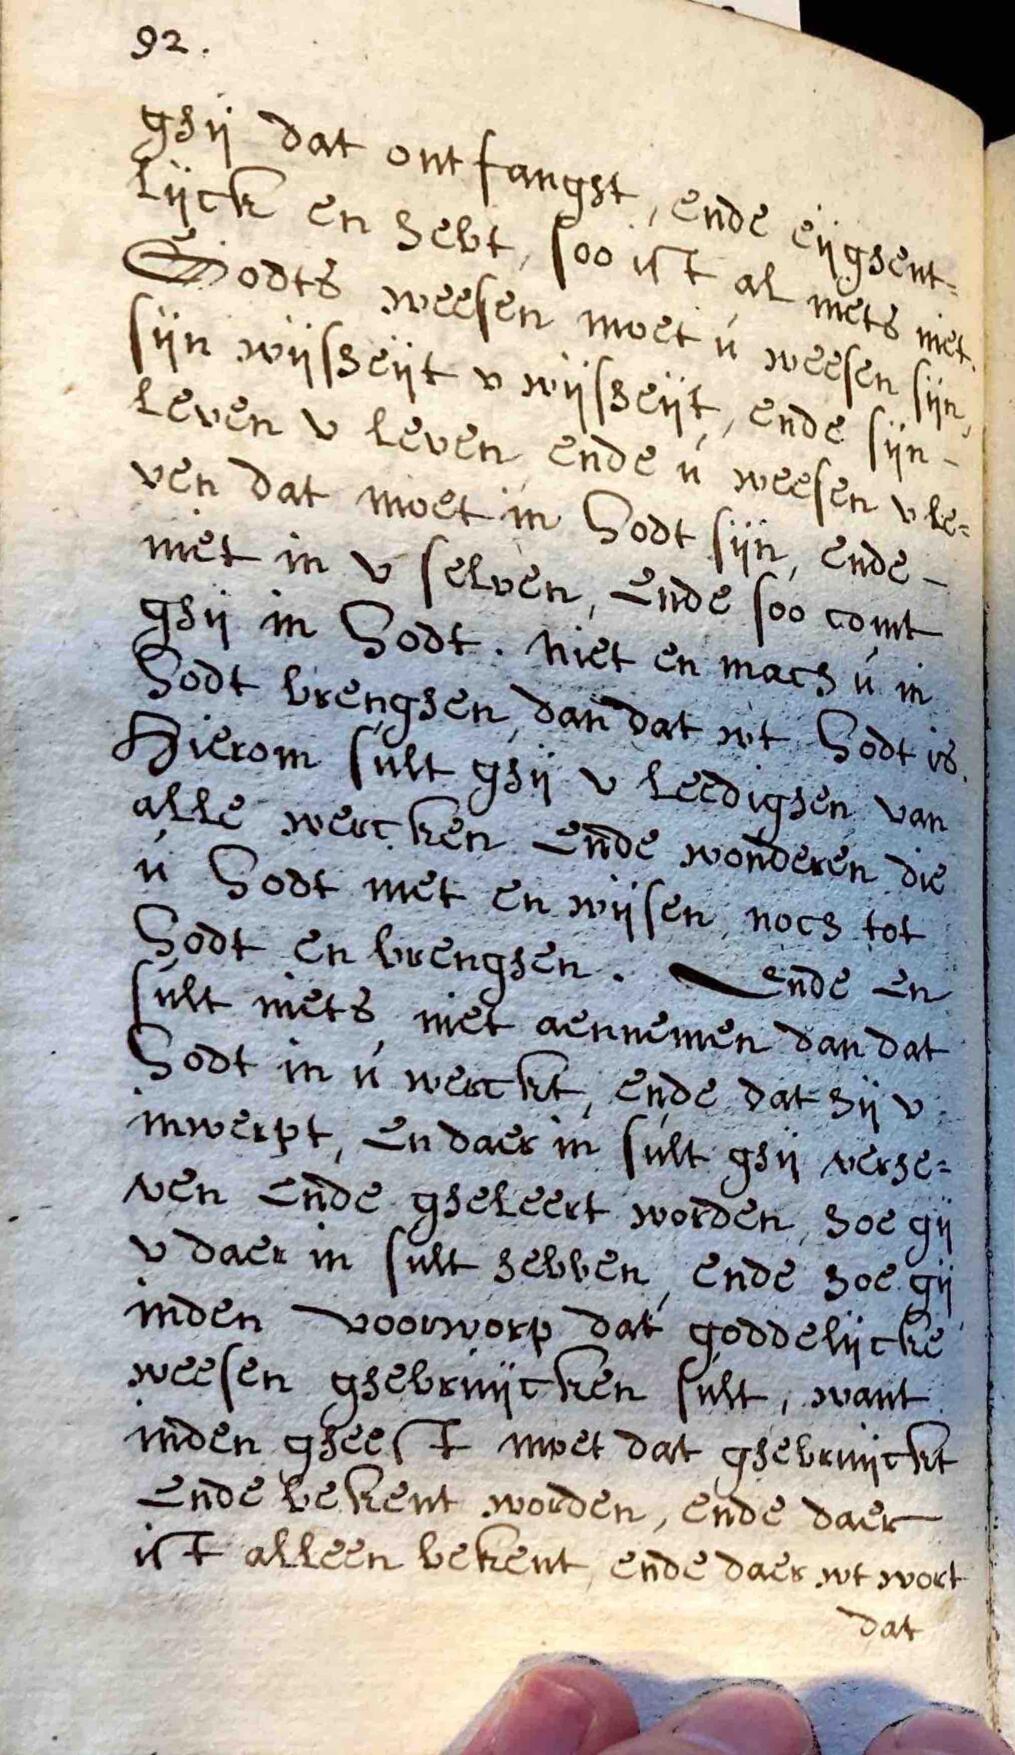 92.
ghij dat ontfanght, ende eijghent=
lijck en hebt, soo ist al niets niet.
Godts weesen moet ú weesen sijn,
sijn wijsheijt v wijsheijt, ende sijn –
leven v leven ende ú weesen v le=
ven dat moet in Godt sijn, ende –
niet in v selven, Ende soo comt
ghij in Godt. niet en mach ú in
Godt brenghen, dan dat wt Godt is.
Hierom sult ghij v leedighen van
alle wercken Ende wonderen die
ú Godt niet en wijsen, noch tot
Godt en brenghen. Ende en
sult niets niet aennemen dan dat
Godt in ú werckt, ende dat hij v
inwerpt, en daer in sult ghij verhe=
ven Ende gheleert worden, hoe gij
v daer in sult hebben, ende hoe gij
inden voorworp dat goddelijcke
weesen ghebruijcken sult, want
inden gheest moet dat ghebruijckt
Ende bekent worden, ende daer
ist alleen bekent, ende daer wt wort
dat